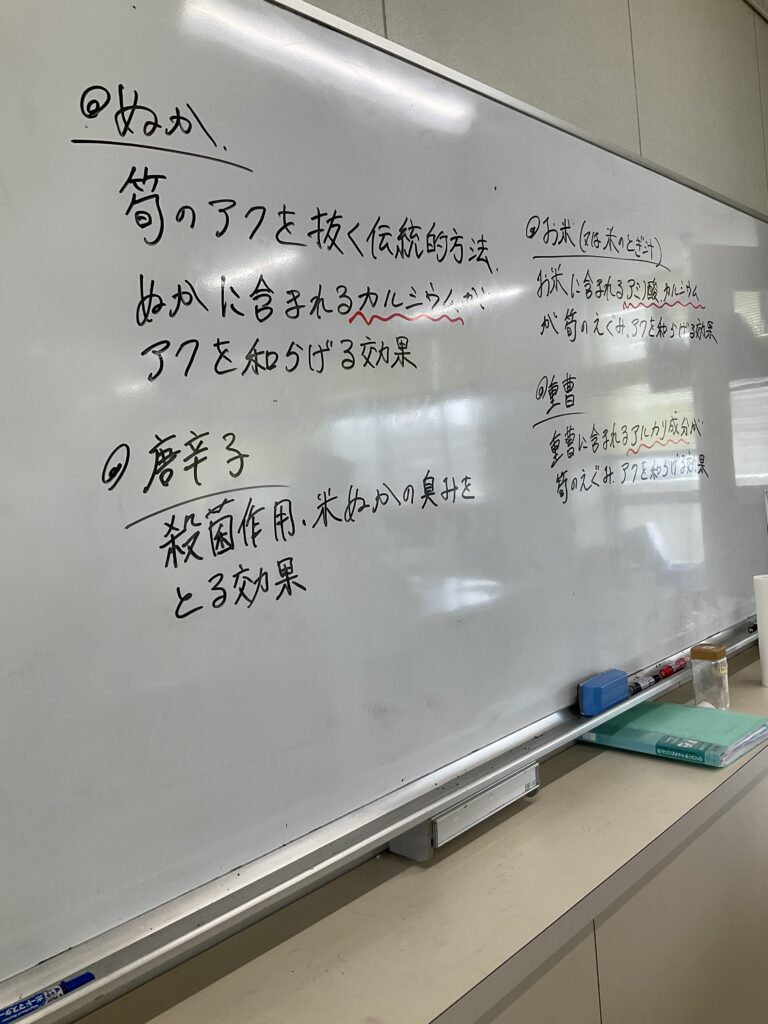 ◎ぬか.
筍のアクを抜く伝統的方法.
ぬかに含まれるカルシウムが
アクを和らげる効果
◎唐辛子
殺菌作用、米ぬかの臭みを
とる効果
◎お米(又は米のとぎ汁)
お米に含まれるアミノ酸、カルシウム
が筍のえぐみ、アクを和らげる効果
◎重曹
重曹に含まれるアルカリ成分が
筍のえぐみ、アクを和らげる効果
ボードマスター